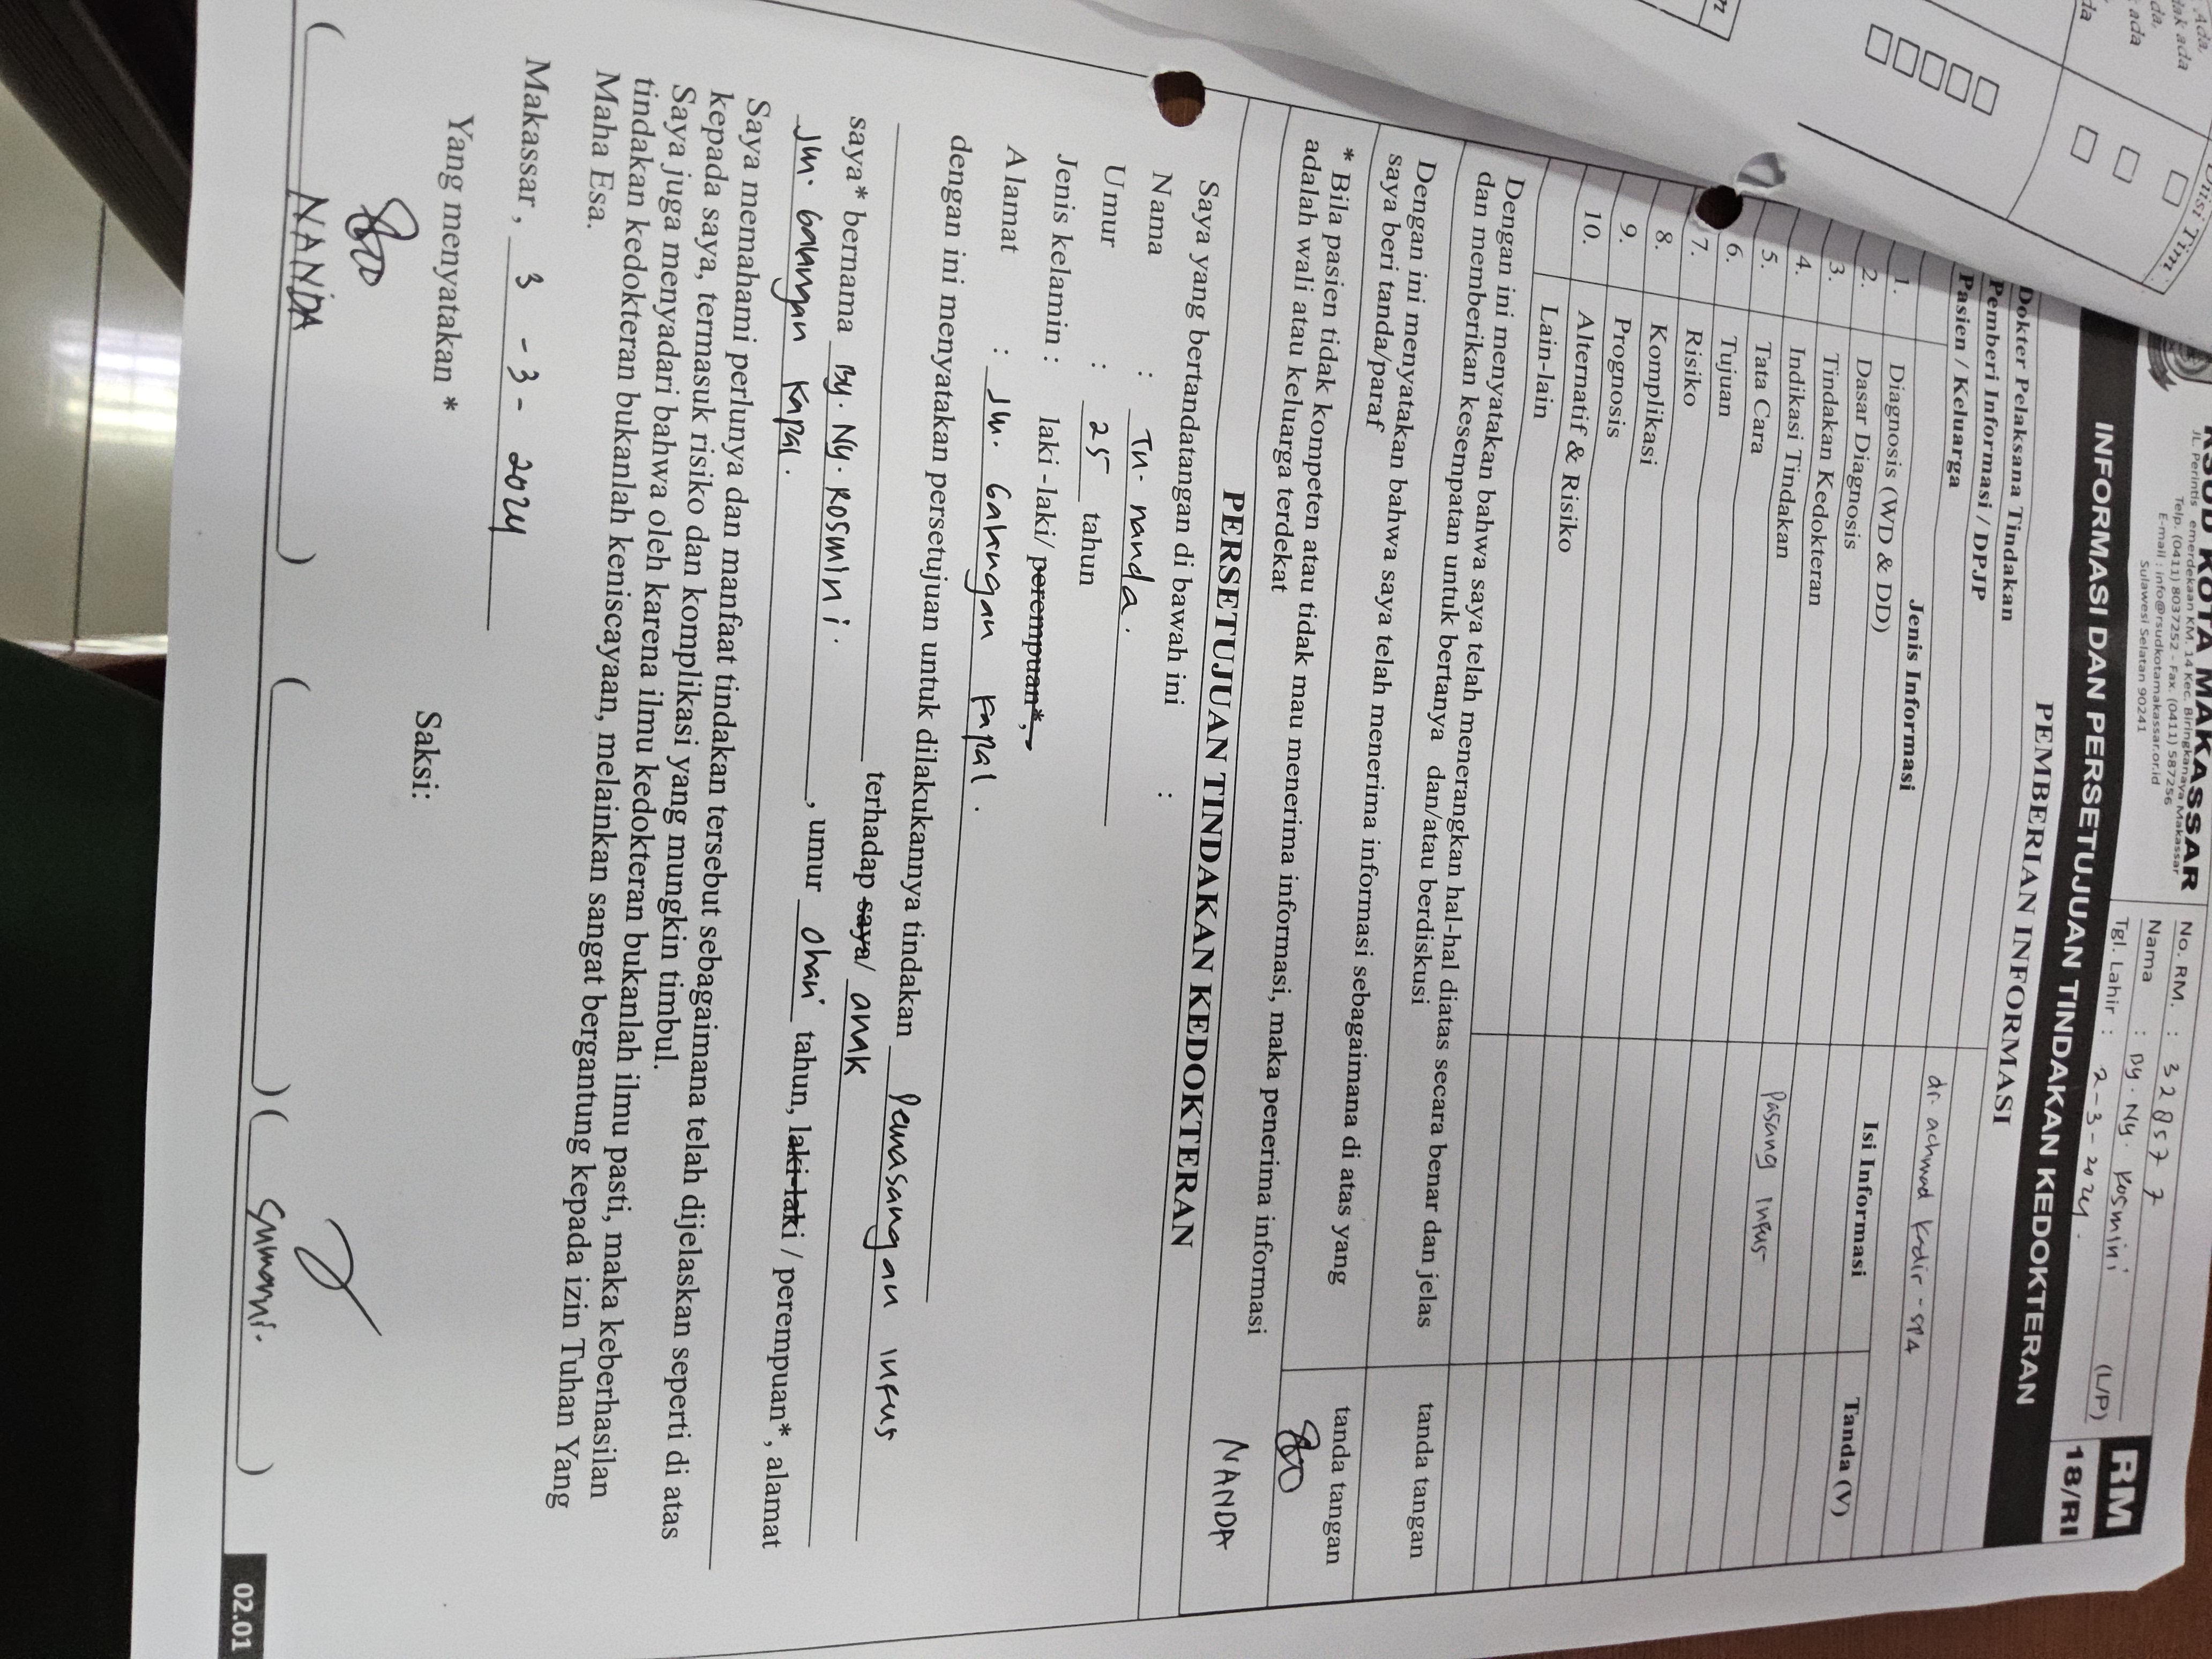 RSUD KOTA MAKASSAR
JL. Perintis emerdekaan KM. 14 Kec. Biringkanaya Makassar
Telp. (0411) 8037252 - Fax. (0411) 587256
E-mail : info@rsudkotamakassar.or.id
Sulawesi Selatan 90241
No. RM. : 328577
Nama : By. Ny. Rosmini
Tgl. Lahir : 2-3-2024. (L/P)
RM
18/RI
INFORMASI DAN PERSETUJUAN TINDAKAN KEDOKTERAN
PEMBERIAN INFORMASI
Dokter Pelaksana Tindakan
Pemberi Informasi / DPJP dr. achmad kadir - SPA
Pasien / Keluarga
Jenis Informasi Isi Informasi Tanda (V)
1. Diagnosis (WD & DD)
2. Dasar Diagnosis
3. Tindakan Kedokteran Pasang Infus
4. Indikasi Tindakan
5. Tata Cara
6. Tujuan
7. Risiko
8. Komplikasi
9. Prognosis
10. Alternatif & Risiko
Lain-lain
Dengan ini menyatakan bahwa saya telah menerangkan hal-hal diatas secara benar dan jelas
dan memberikan kesempatan untuk bertanya dan/atau berdiskusi
tanda tangan
Dengan ini menyatakan bahwa saya telah menerima informasi sebagaimana di atas yang
saya beri tanda/paraf
tanda tangan
NANDA
* Bila pasien tidak kompeten atau tidak mau menerima informasi, maka penerima informasi
adalah wali atau keluarga terdekat
PERSETUJUAN TINDAKAN KEDOKTERAN
Saya yang bertandatangan di bawah ini :
Nama : Tn. nanda.
Umur : 25 tahun
Jenis kelamin : laki -laki/ perempuan*,
Alamat : Jln. Galangan Kapal.
dengan ini menyatakan persetujuan untuk dilakukannya tindakan Pemasangan infus
terhadap saya/ anak
saya* bernama By. Ny. Rosmini. , umur 0 hari tahun, laki-laki / perempuan* , alamat
Jln. Galangan Kapal.
Saya memahami perlunya dan manfaat tindakan tersebut sebagaimana telah dijelaskan seperti di atas
kepada saya, termasuk risiko dan komplikasi yang mungkin timbul.
Saya juga menyadari bahwa oleh karena ilmu kedokteran bukanlah ilmu pasti, maka keberhasilan
tindakan kedokteran bukanlah keniscayaan, melainkan sangat bergantung kepada izin Tuhan Yang
Maha Esa.
Makassar , 3 - 3 - 2024
Yang menyatakan * Saksi:
( NANDA ) ( ) ( )
02.01